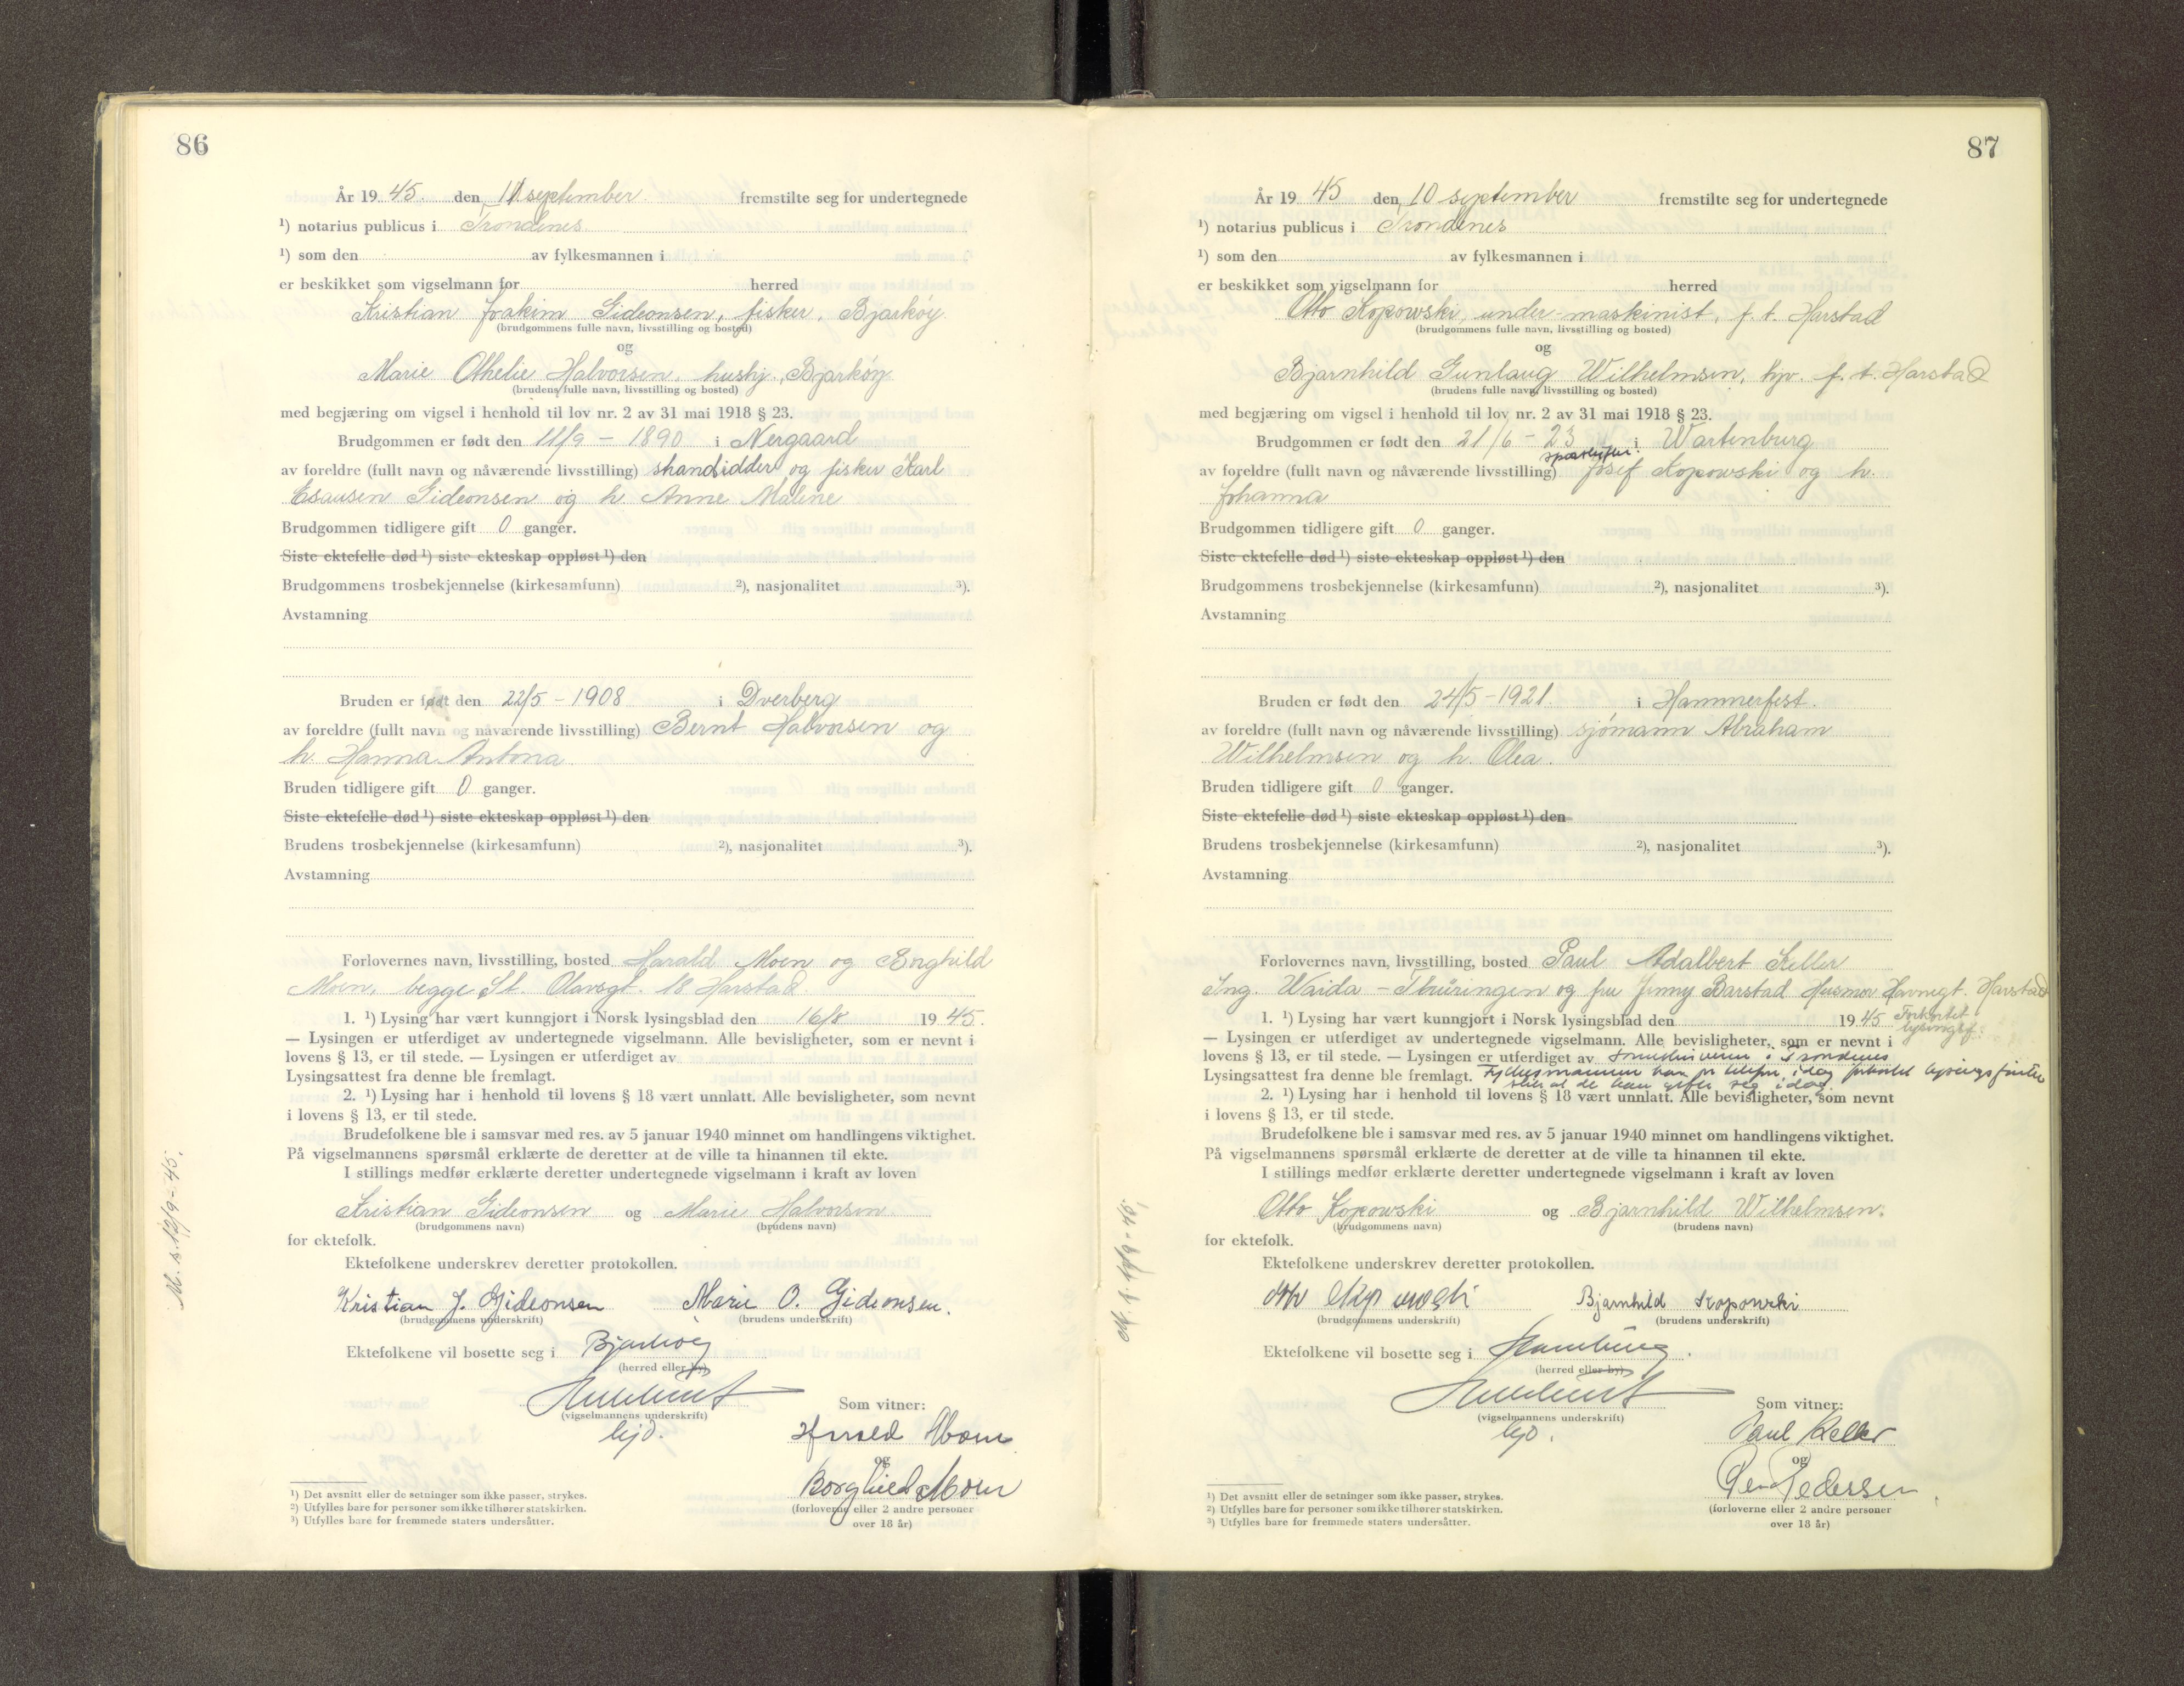 86
År 19 45. den 11 september fremstilte seg for undertegnede
¹) notarius publicus i Trondenes
¹) som den av fylkesmannen i
er beskikket som vigselmann for herred
Kristian Joakim Gideonsen, fisker, Bjarkøy
(brudgommens fulle navn, livsstilling og bosted)
og
Marie Othelie Halvorsen, hushj., Bjarkøy
(brudens fulle navn, livsstilling og bosted)
med begjæring om vigsel i henhold til lov nr. 2 av 31 mai 1918 § 23.
Brudgommen er født den 11/9 - 1890 i Nergaard
av foreldre (fullt navn og nåværende livsstilling) strandsidder og fisker Karl
Esausen Gideonsen og h. Anne Maline
Brudgommen tidligere gift 0 ganger.
Siste ektefelle død ¹) siste ekteskap oppløst ¹) den
Brudgommens trosbekjennelse (kirkesamfunn) ²), nasjonalitet ³).
Avstamning
Bruden er født den 22/5 - 1908 i Dverberg
av foreldre (fullt navn og nåværende livsstilling) Bernt Halvorsen og
h. Hanna Antona
Bruden tidligere gift 0 ganger.
Siste ektefelle død ¹) siste ekteskap oppløst ¹) den
Brudens trosbekjennelse (kirkesamfunn) ²), nasjonalitet ³).
Avstamning
Forlovernes navn, livsstilling, bosted Harald Moen og
Moen, begge St. Olavsgt. 18 Harstad.
1. ¹) Lysing har vært kunngjort i Norsk lysingsblad den 16/8 19 45.
— Lysingen er utferdiget av undertegnede vigselmann. Alle bevisligheter, som er nevnt i
lovens § 13, er til stede. — Lysingen er utferdiget av
Lysingsattest fra denne ble fremlagt.
2. ¹) Lysing har i henhold til lovens § 18 vært unnlatt. Alle bevisligheter, som nevnt
i lovens § 13, er til stede.
Brudefolkene ble i samsvar med res. av 5 januar 1940 minnet om handlingens viktighet.
På vigselmannens spørsmål erklærte de deretter at de ville ta hinannen til ekte.
I stillings medfør erklærte deretter undertegnede vigselmann i kraft av loven
Kristian Gideonsen og Marie Halvorsen
(brudgommens navn) (brudens navn)
for ektefolk.
Ektefolkene underskrev deretter protokollen.
Kristian J. Gideonsen Marie O. Gideonsen.
(brudgommens underskrift) (brudens underskrift)
Ektefolkene vil bosette seg i Bjarkøy
(herred eller by)
(vigselmannens underskrift)
Som vitner:
Harald Moen
og
Borghild Moen
(forloverne eller 2 andre personer
over 18 år)
¹) Det avsnitt eller de setninger som ikke passer, strykes.
²) Utfylles bare for personer som ikke tilhører statskirken.
³) Utfylles bare for fremmede staters undersåtter.
M. s. 12/9-45.
87
År 19 45 den 10 september fremstilte seg for undertegnede
¹) notarius publicus i Trondenes
¹) som den av fylkesmannen i
er beskikket som vigselmann for herred
Otto Kopowski, under-maskinist, f. t. Harstad
(brudgommens fulle navn, livsstilling og bosted)
og
Bjarnhild Gunlaug Wilhelmsen, f. t. Harstad
(brudens fulle navn, livsstilling og bosted)
med begjæring om vigsel i henhold til lov nr. 2 av 31 mai 1918 § 23.
Brudgommen er født den 21/6 - 23 i Wartenburg
av foreldre (fullt navn og nåværende livsstilling) Josef Kopowski og h.
Johanna
Brudgommen tidligere gift 0 ganger.
Siste ektefelle død ¹) siste ekteskap oppløst ¹) den
Brudgommens trosbekjennelse (kirkesamfunn) ²), nasjonalitet ³).
Avstamning
Bruden er født den 24/5 - 1921. i Hammerfest.
av foreldre (fullt navn og nåværende livsstilling) sjømann Abraham
Wilhelmsen og h. Olea.
Bruden tidligere gift 0 ganger.
Siste ektefelle død ¹) siste ekteskap oppløst ¹) den
Brudens trosbekjennelse (kirkesamfunn) ²), nasjonalitet ³).
Avstamning
Forlovernes navn, livsstilling, bosted Paul Adalbert Keller
Ing. Waida - Thüringen og fru Jenny Barstad Husmor Havnegt. Harstad
1. ¹) Lysing har vært kunngjort i Norsk lysingsblad den 19 45 Forkortet
lysingsf.
— Lysingen er utferdiget av undertegnede vigselmann. Alle bevisligheter, som er nevnt i
lovens § 13, er til stede. — Lysingen er utferdiget av sorenskriveren i Trondenes
Lysingsattest fra denne ble fremlagt. Fylkesmannen har pr telefon idag forkortet lysingsfristen
slik at de kan gifte seg idag.
2. ¹) Lysing har i henhold til lovens § 18 vært unnlatt. Alle bevisligheter, som nevnt
i lovens § 13, er til stede.
Brudefolkene ble i samsvar med res. av 5 januar 1940 minnet om handlingens viktighet.
På vigselmannens spørsmål erklærte de deretter at de ville ta hinannen til ekte.
I stillings medfør erklærte deretter undertegnede vigselmann i kraft av loven
Otto Kopowski og Bjarnhild Wilhelmsen.
(brudgommens navn) (brudens navn)
for ektefolk.
Ektefolkene underskrev deretter protokollen.
Otto Kopowski Bjarnhild Kopowski
(brudgommens underskrift) (brudens underskrift)
Ektefolkene vil bosette seg i Hamburg.
(herred eller by)
(vigselmannens underskrift)
Som vitner:
Paul Keller
og
Pedersen
(forloverne eller 2 andre personer
over 18 år)
¹) Det avsnitt eller de setninger som ikke passer, strykes.
²) Utfylles bare for personer som ikke tilhører statskirken.
³) Utfylles bare for fremmede staters undersåtter.